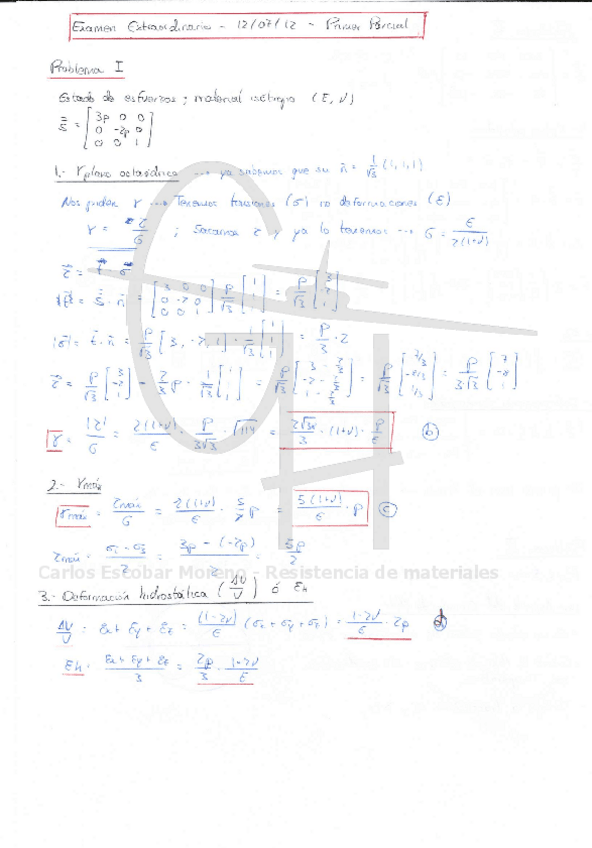 Examen Extraordinario - 12/07/12 - Primer Parcial
Problema I
Estado de esfuerzos; material isótropo (E, ν)
S = [3p 0 0
0 -2p 0
0 0 1]
1.- γ plano octaédrico ... ya sabemos que su n̄ = 1/√3 (1, 1, 1)
Nos piden γ ... Tenemos tensiones (σ) no deformaciones (ε)
γ = τ/G ; Sacamos τ y ya lo tenemos ... G = E/2(1+ν)
t = S · n = [3 0 0
0 -2 0
0 0 1] p/√3 [1 1 1] = p/√3 [3 -2 1]
|σ| = t · n = p/√3 [3, -2, 1] · 1/√3 [1 1 1] = p/3 · 2
τ = p/√3 [3 -2 1] - 2/3 p · 1/√3 [1 1 1] = p/√3 [3 - 2/3, -2 - 2/3, 1 - 2/3] = p/√3 [7/3 -8/3 1/3] = p/3√3 [7 -8 1]
γ = |τ|/G = 2(1+ν)/E · p/3√3 · √114 = 2√38/3 · (1+ν) · p/E (b)
2.- γmáx
γmáx = τmáx/G = 2(1+ν)/E · 5/2 p = 5(1+ν)/E · p (c)
τmáx = σ1 - σ3/2 = 3p - (-2p)/2 = 5p/2
Carlos Escobar Moreno - Resistencia de materiales
3.- Deformación hidrostática (ΔV/V) ó εh
ΔV/V = εx + εy + εz = (1-2ν)/E (σx + σy + σz) = 1-2ν/E · 2p (d)
εh = εx + εy + εz/3 = 2p/3 · 1-2ν/E